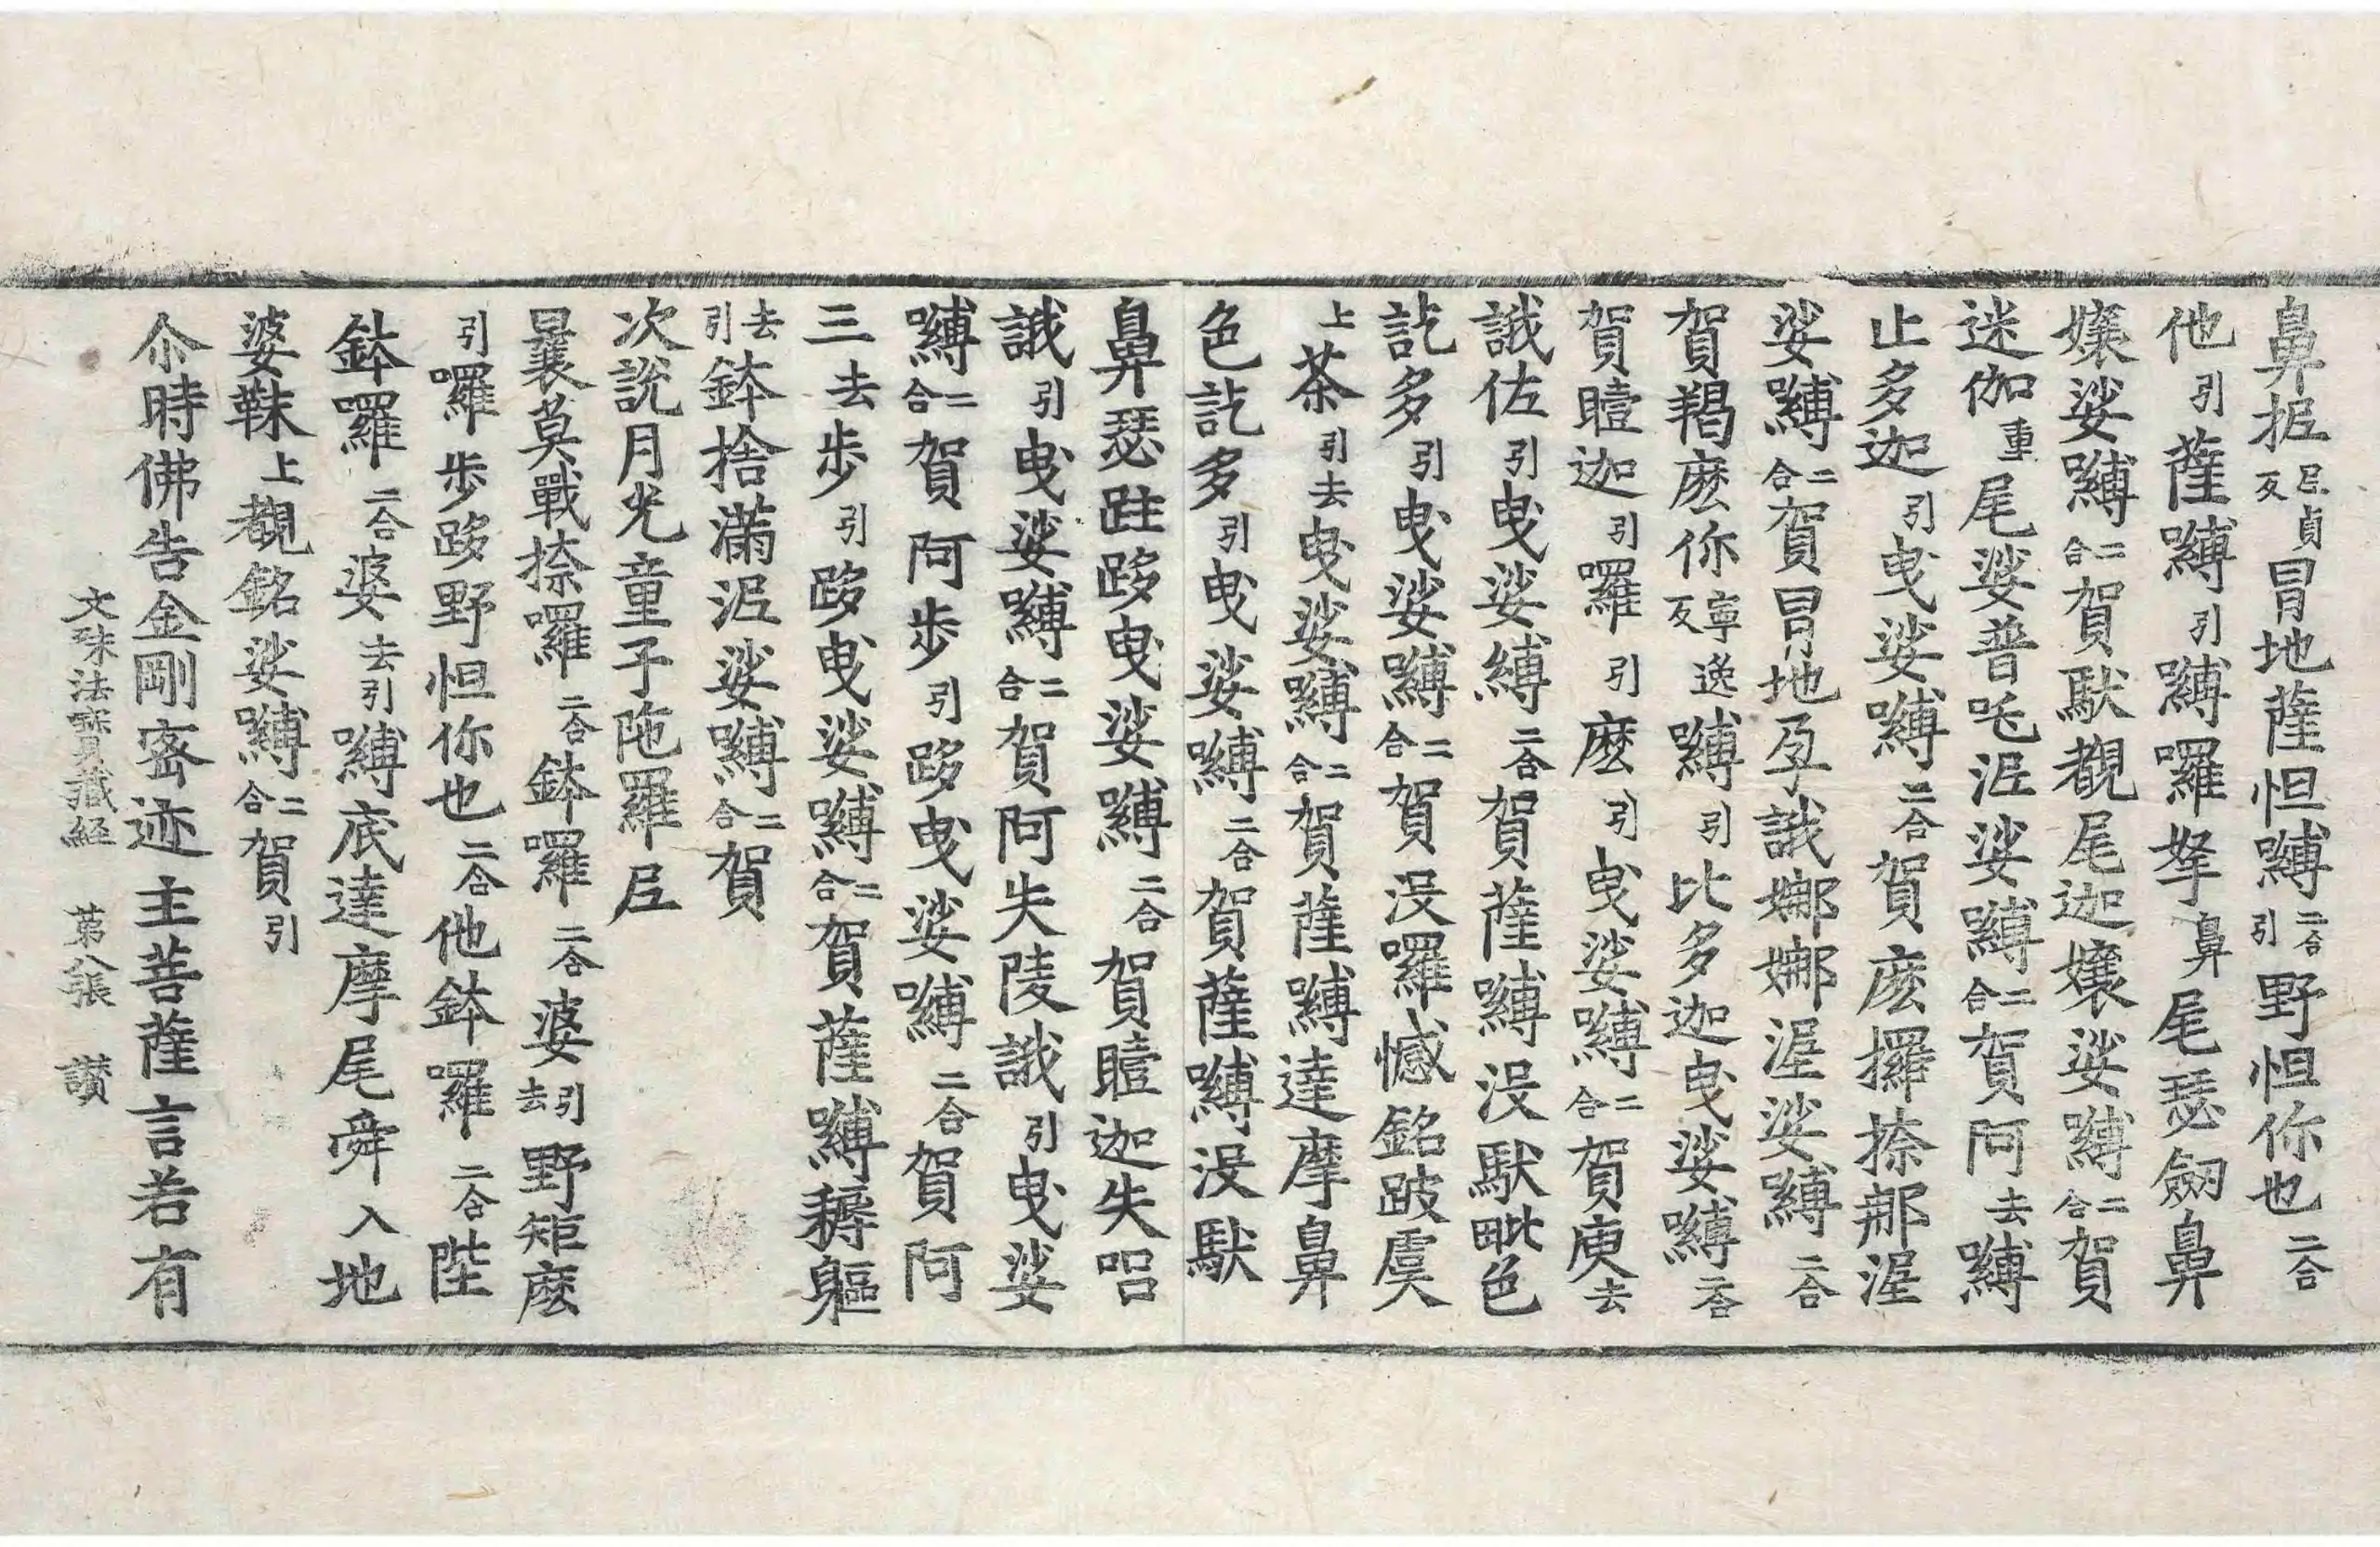 鼻抳尼貞反冐地薩怛嚩二合引野怛你也二合
他引薩嚩引嚩囉拏鼻尾瑟劔鼻
孃娑嚩二合賀馱覩尾迦孃娑嚩二合賀
迷伽重尾娑普吒泥娑嚩二合賀阿去嚩
止多迦引曳娑嚩二合賀麽攞捺那渥
娑嚩二合賀冐地孕誐娜娜渥娑嚩二合
賀羯麽你寧逸反嚩引比多迦曳娑嚩二合
賀曀迦引囉引麽引曳娑嚩二合賀庾去
誐佐引曳娑嚩二合賀薩嚩没馱毗色
訖多引曳娑嚩二合賀没囉憾銘跛虞
上荼引去曳娑嚩二合賀薩嚩達摩鼻
色訖多引曳娑嚩二合賀薩嚩没馱
鼻瑟跓跢曳娑嚩二合賀曀迦失哩
誐引曳娑嚩二合賀阿失陵誐引曳娑
嚩二合賀阿步引跢曳娑嚩二合賀阿
三去步引跢曳娑嚩二合賀薩嚩耨軀
去引鉢捨滿泥娑嚩二合賀
次說月光童子陁羅尼
曩莫戰捺囉二合鉢囉二合婆引去野矩麽
引囉步跢野怛你也二合他鉢囉二合陛
鉢囉二合婆去引嚩底達摩尾舜入地
婆靺上覩銘娑嚩二合賀引
尒時佛告金剛密迹主菩薩言若有
文殊法寶藏経　苐八張　讃